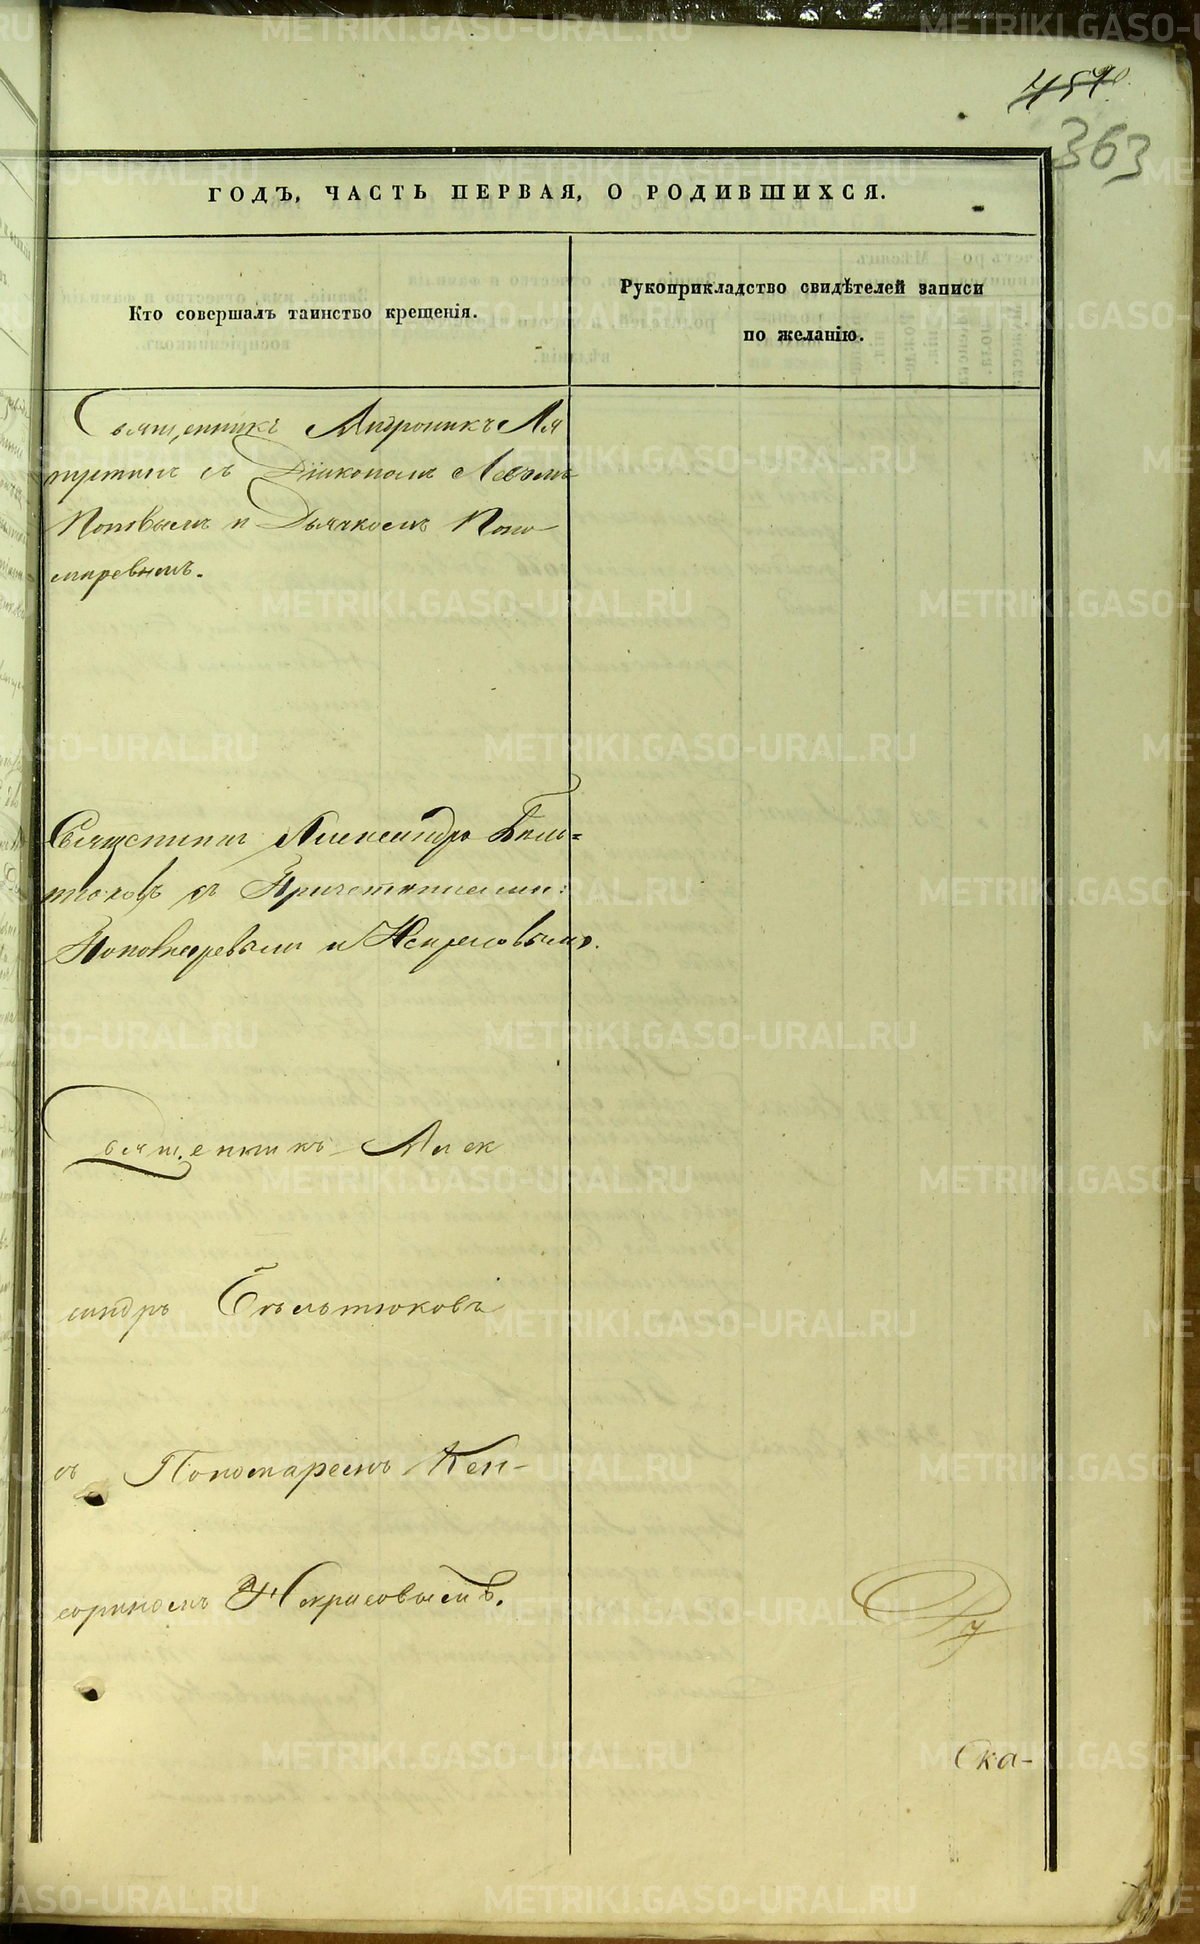 363
ГОДЪ, ЧАСТЬ ПЕРВАЯ, О РОДИВШИХСЯ.
Кто совершалъ таинство крещенія.
Рукоприкладство свидѣтелей записи
по желанію.
Священникъ Андроникъ Ля
пустинъ съ Діакономъ
Поповымъ и Дьячкомъ Поно
маревымъ.
Священникъ Александръ Бѣль=
тюковъ съ Причетниками:
Пономаревымъ и Некрасовымъ.
Священникъ Алек
сандръ Бѣльтюковъ
съ Пономаремъ Кен-
сориномъ Некрасовымъ.
Ру
Ска-
METRIKI.GASO-URAL.RU